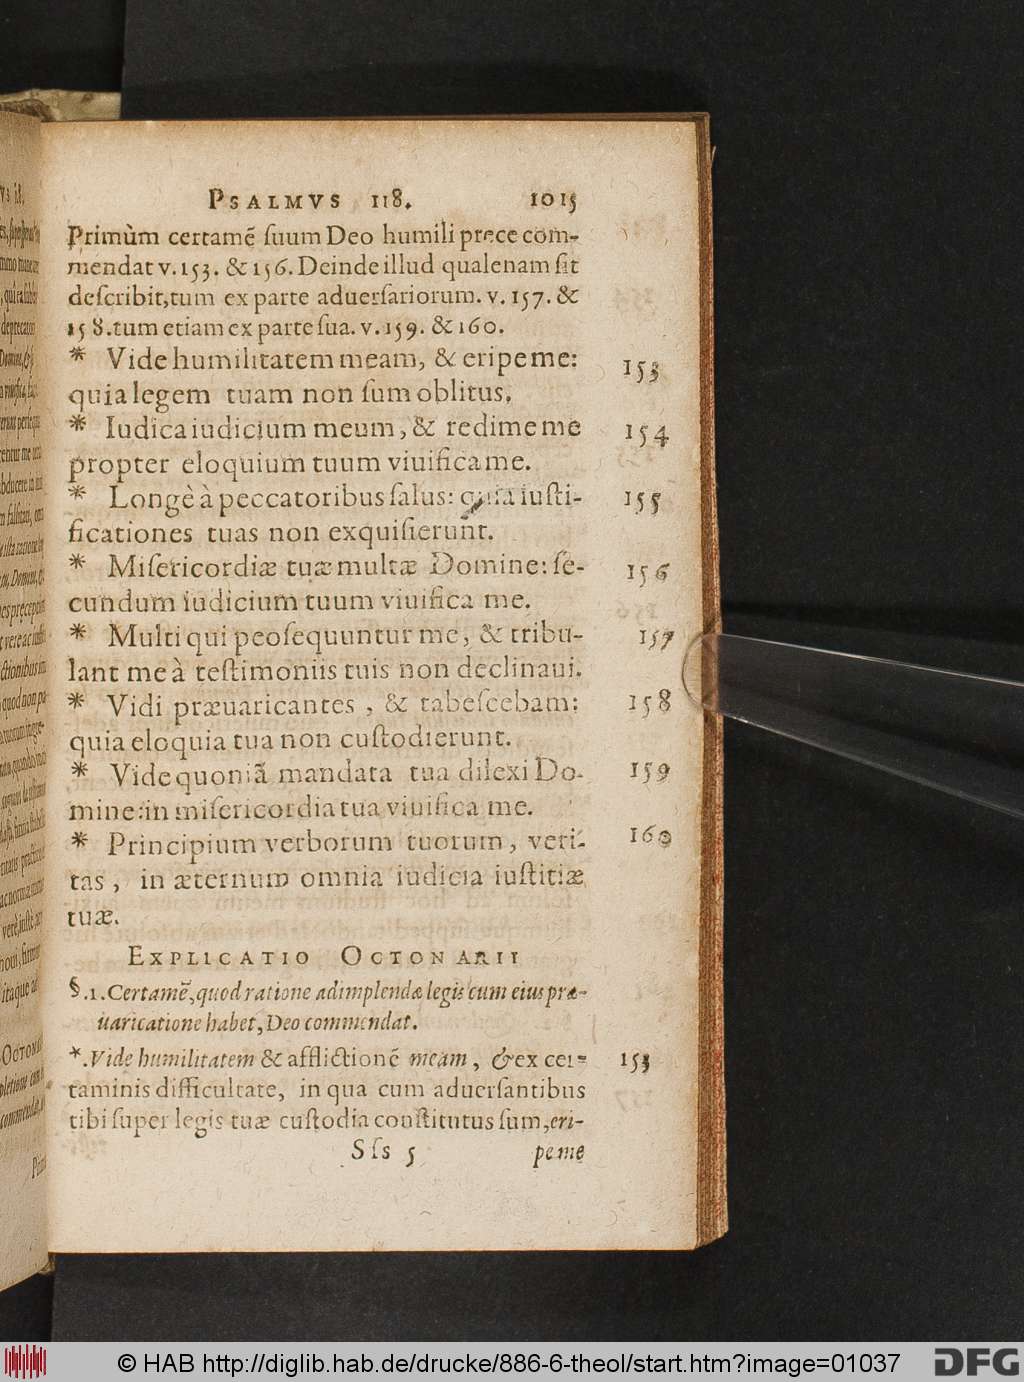 PSALMVS 118. 1015
Primùm certamẽ ſuum Deo humili prece com-
mendat v. 153. & 156. Deinde illud qualenam ſit
deſcribit, tum ex parte aduerſariorum. v. 157. &
158. tum etiam ex parte ſua. v. 159. & 160.
* Vide humilitatem meam, & eripe me: 153
quia legem tuam non ſum oblitus.
* Iudica iudicium meum, & redime me 154
propter eloquium tuum viuifica me.
* Longè à peccatoribus ſalus: quia iuſti- 155
ficationes tuas non exquiſierunt.
* Miſericordiæ tuæ multæ Domine: ſe- 156
cundum iudicium tuum viuifica me.
* Multi qui peoſequuntur me, & tribu- 157
lant me à teſtimoniis tuis non declinaui.
* Vidi præuaricantes, & tabeſcebam: 158
quia eloquia tua non cuſtodierunt.
* Vide quoniã mandata tua dilexi Do- 159
mine: in miſericordia tua viuifica me.
* Principium verborum tuorum, veri- 160
tas, in æternum omnia iudicia iuſtitiæ
tuæ.
EXPLICATIO OCTONARII
§. 1. Certamẽ, quod ratione adimplendæ legis cum eius præ-
uaricatione habet, Deo commendat.
*. Vide humilitatem & afflictionẽ meam, & ex cer- 153
taminis difficultate, in qua cum aduerſantibus
tibi ſuper legis tuæ cuſtodia conſtitutus ſum, eri-
Sſs 5 pe me
© HAB http://diglib.hab.de/drucke/886-6-theol/start.htm?image=01037
DFG